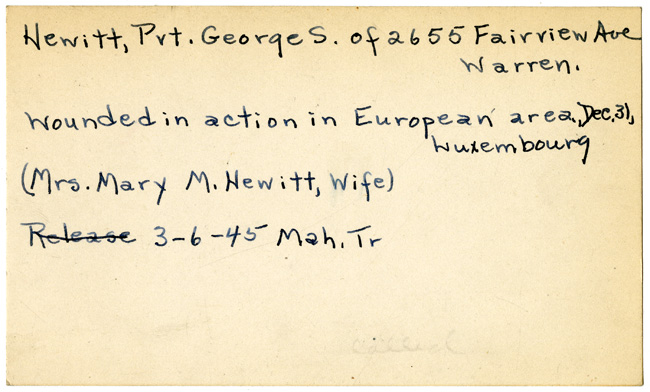 Hewitt, Pvt. George S. of 2655 Fairview Ave
Warren.
Wounded in action in European area, Dec. 31,
Luxembourg
(Mrs. Mary M. Hewitt, Wife)
Release 3-6-45 Mah. Tr
called